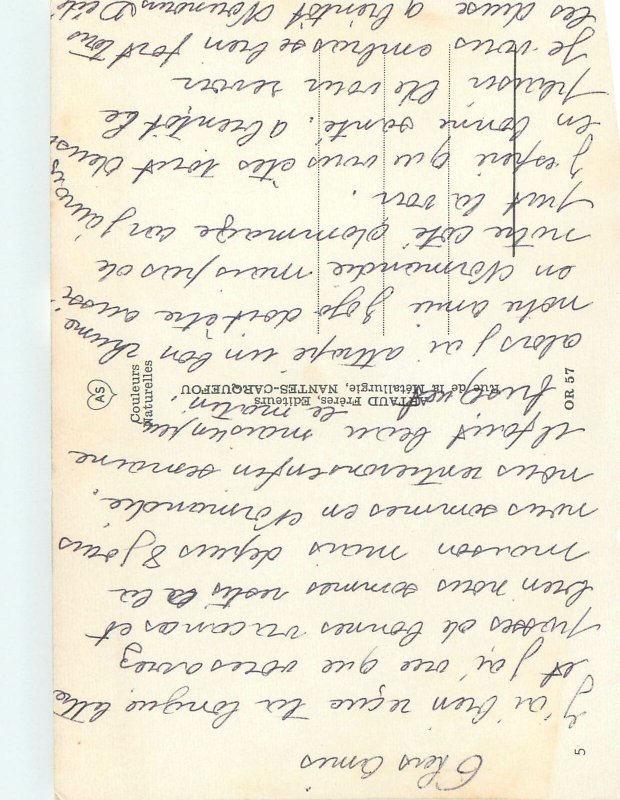 Chers amis
J'ai bien reçue ta longue lettre
et j'ai vue que vous avez
passés de bonnes vacances et
bien nous sommes restis la la
maison mais depuis 8 jours
nous sommes en Normandie,
nous rentrerons en fin semaine
il fait beau mais un peu
frisquet le matin
alors j'ai attrapé un bon rhume
notre amie Jojo doit être aussi
en Normandie mais pas de
notre coté dommage car j'aurais
put la voir.
J'espere que vous êtes tout deux
en bonne santé. a bientôt le
plaisir de vous revoir
Je vous embrasse bien fort tous
les deux a bientôt
5
ARTAUD Frères, Editeurs
Rue de la Métallurgie, NANTES-CARQUEFOU
OR 57
AS
Couleurs
Naturelles